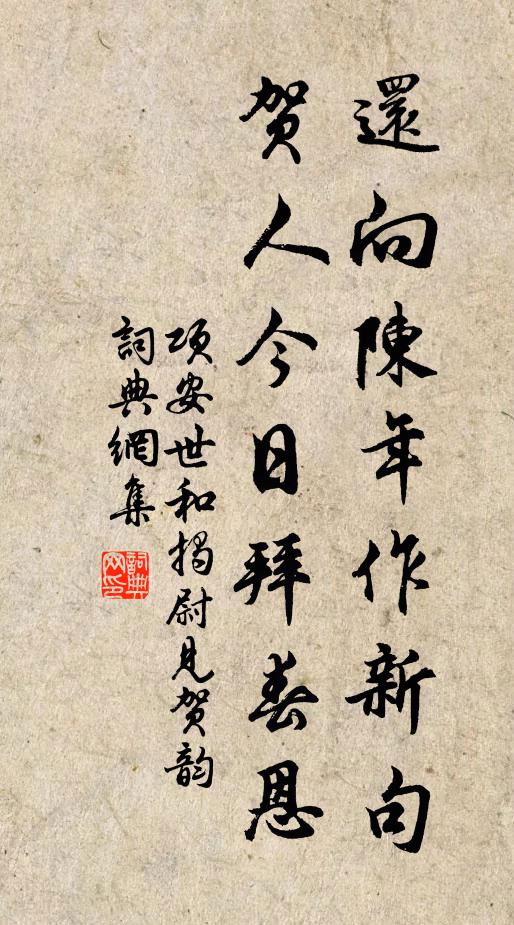 還向陳年作新句
賀人今日拜春恩
項安世和揭尉見賀韵
詞典網集
詞典网印